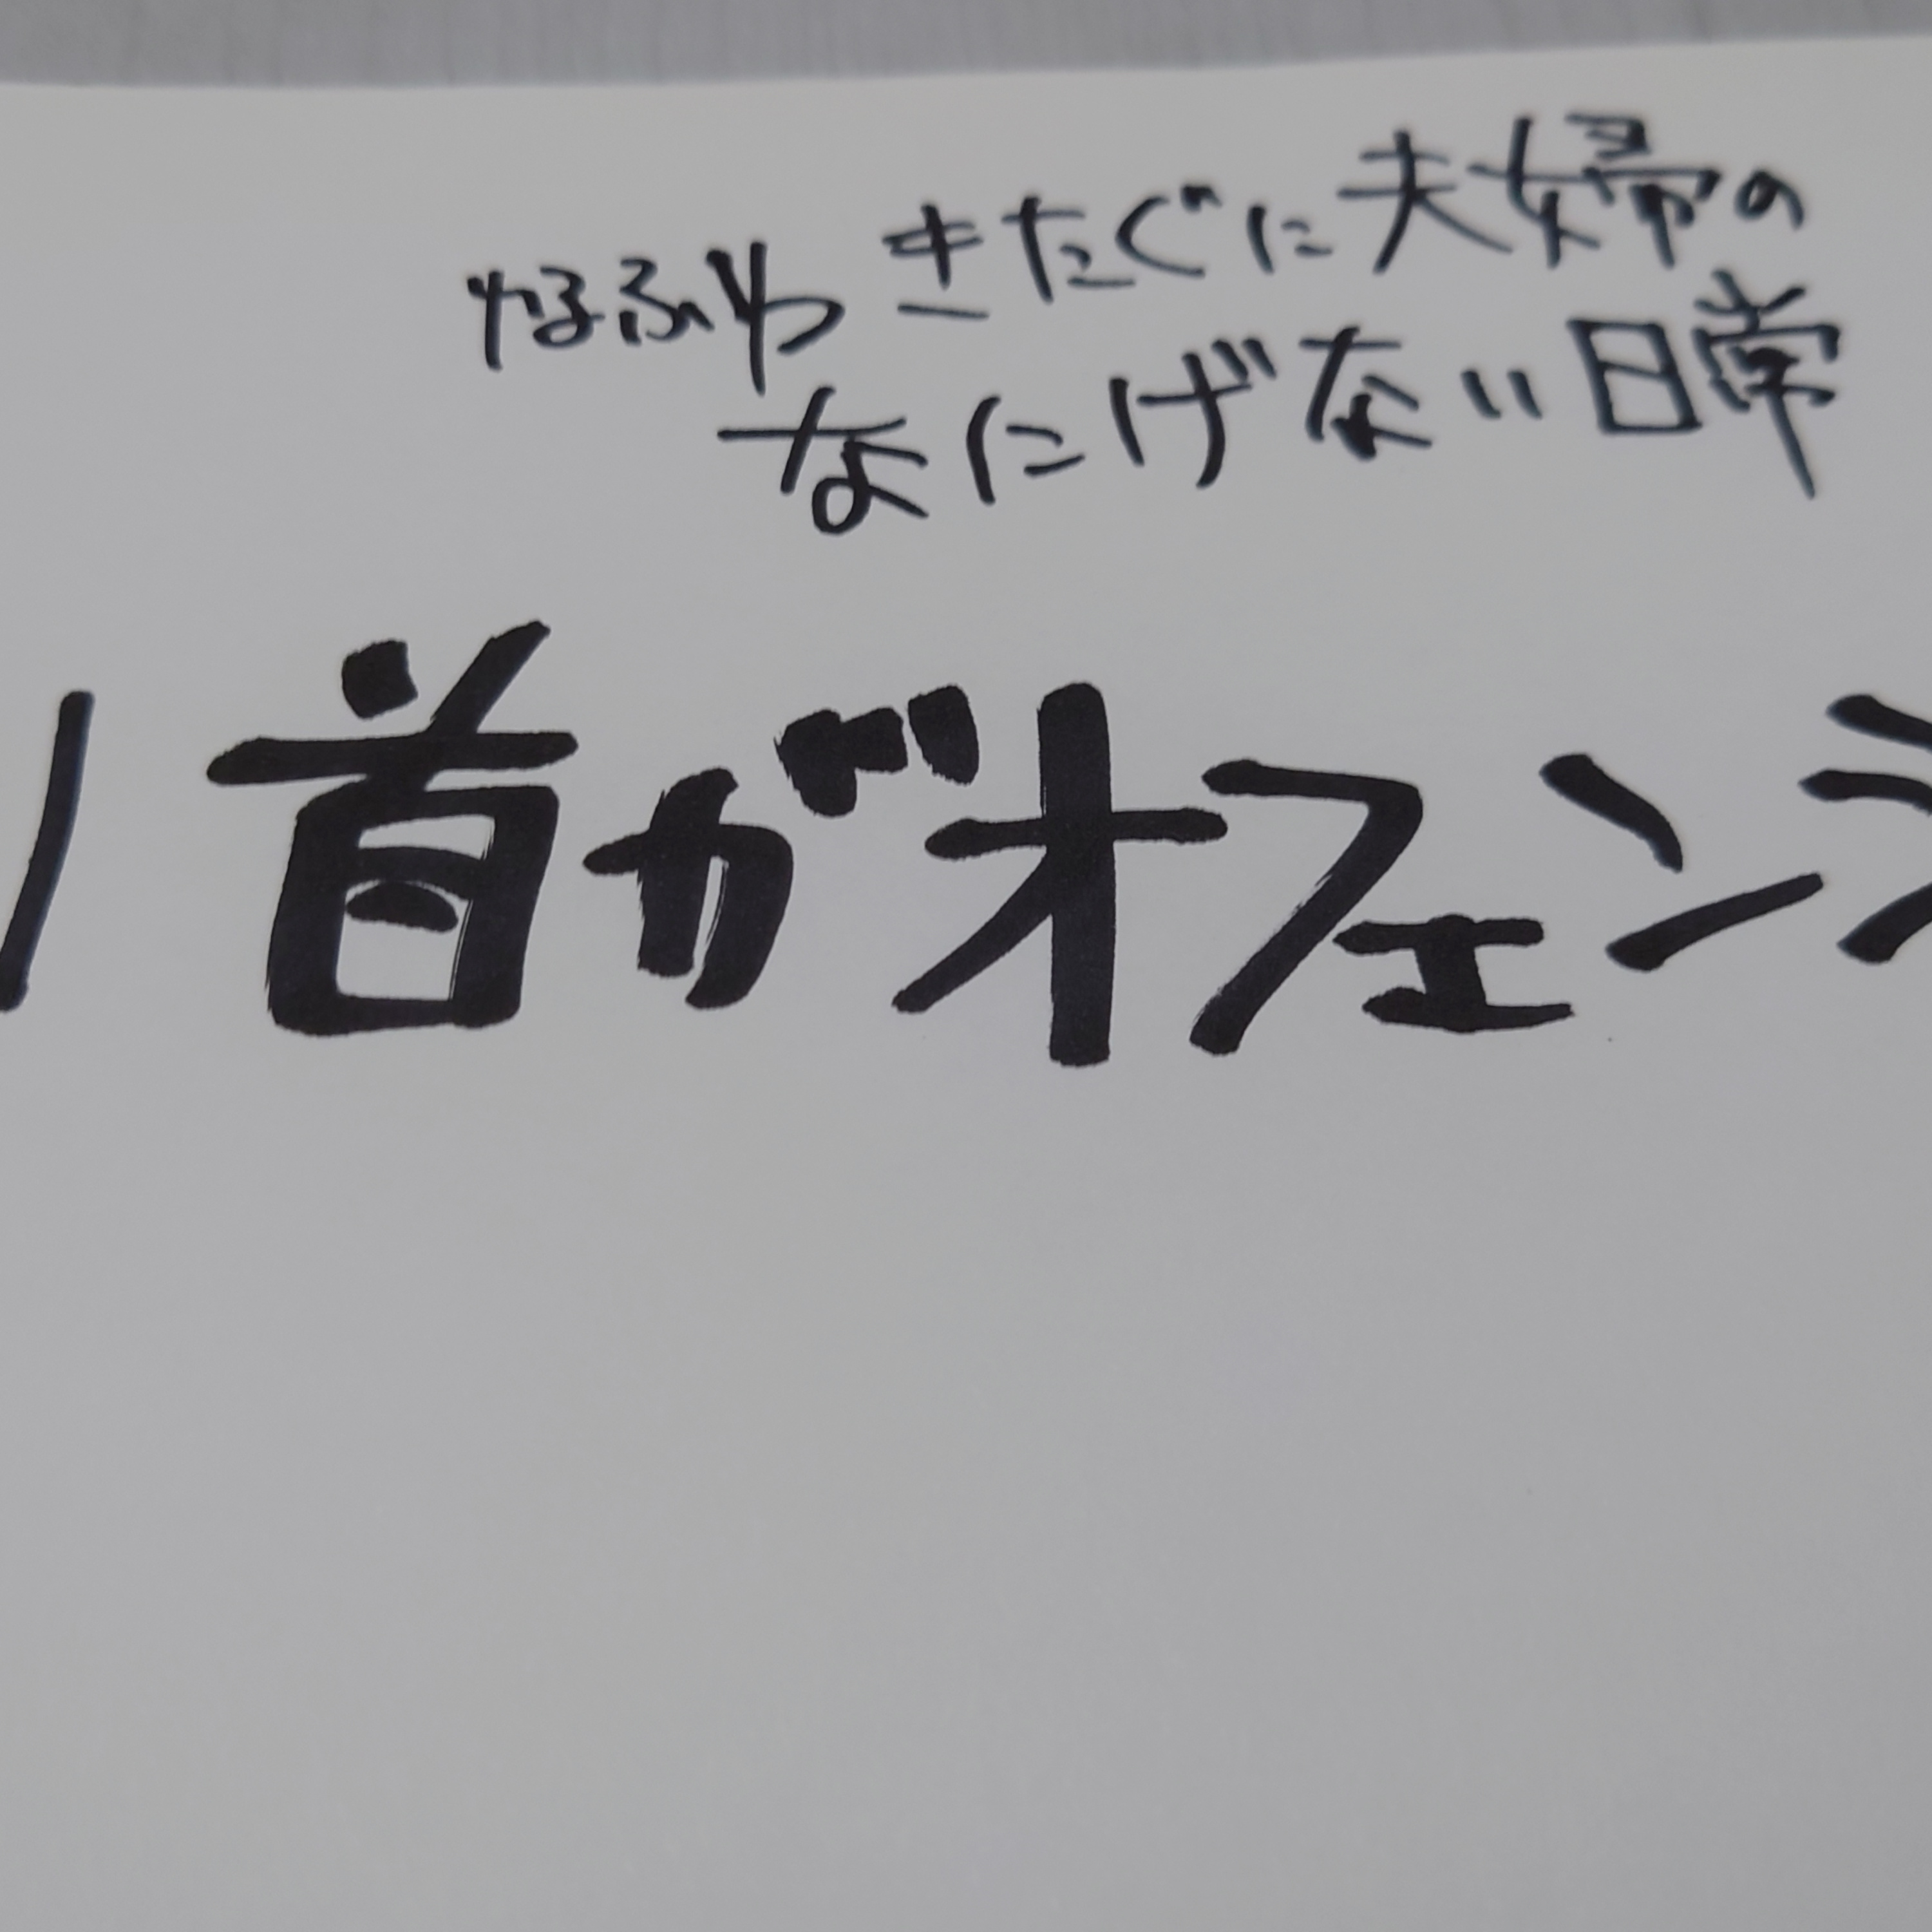 ゆるふわ きたぐに夫婦の
なにげない日常
首がオフェン